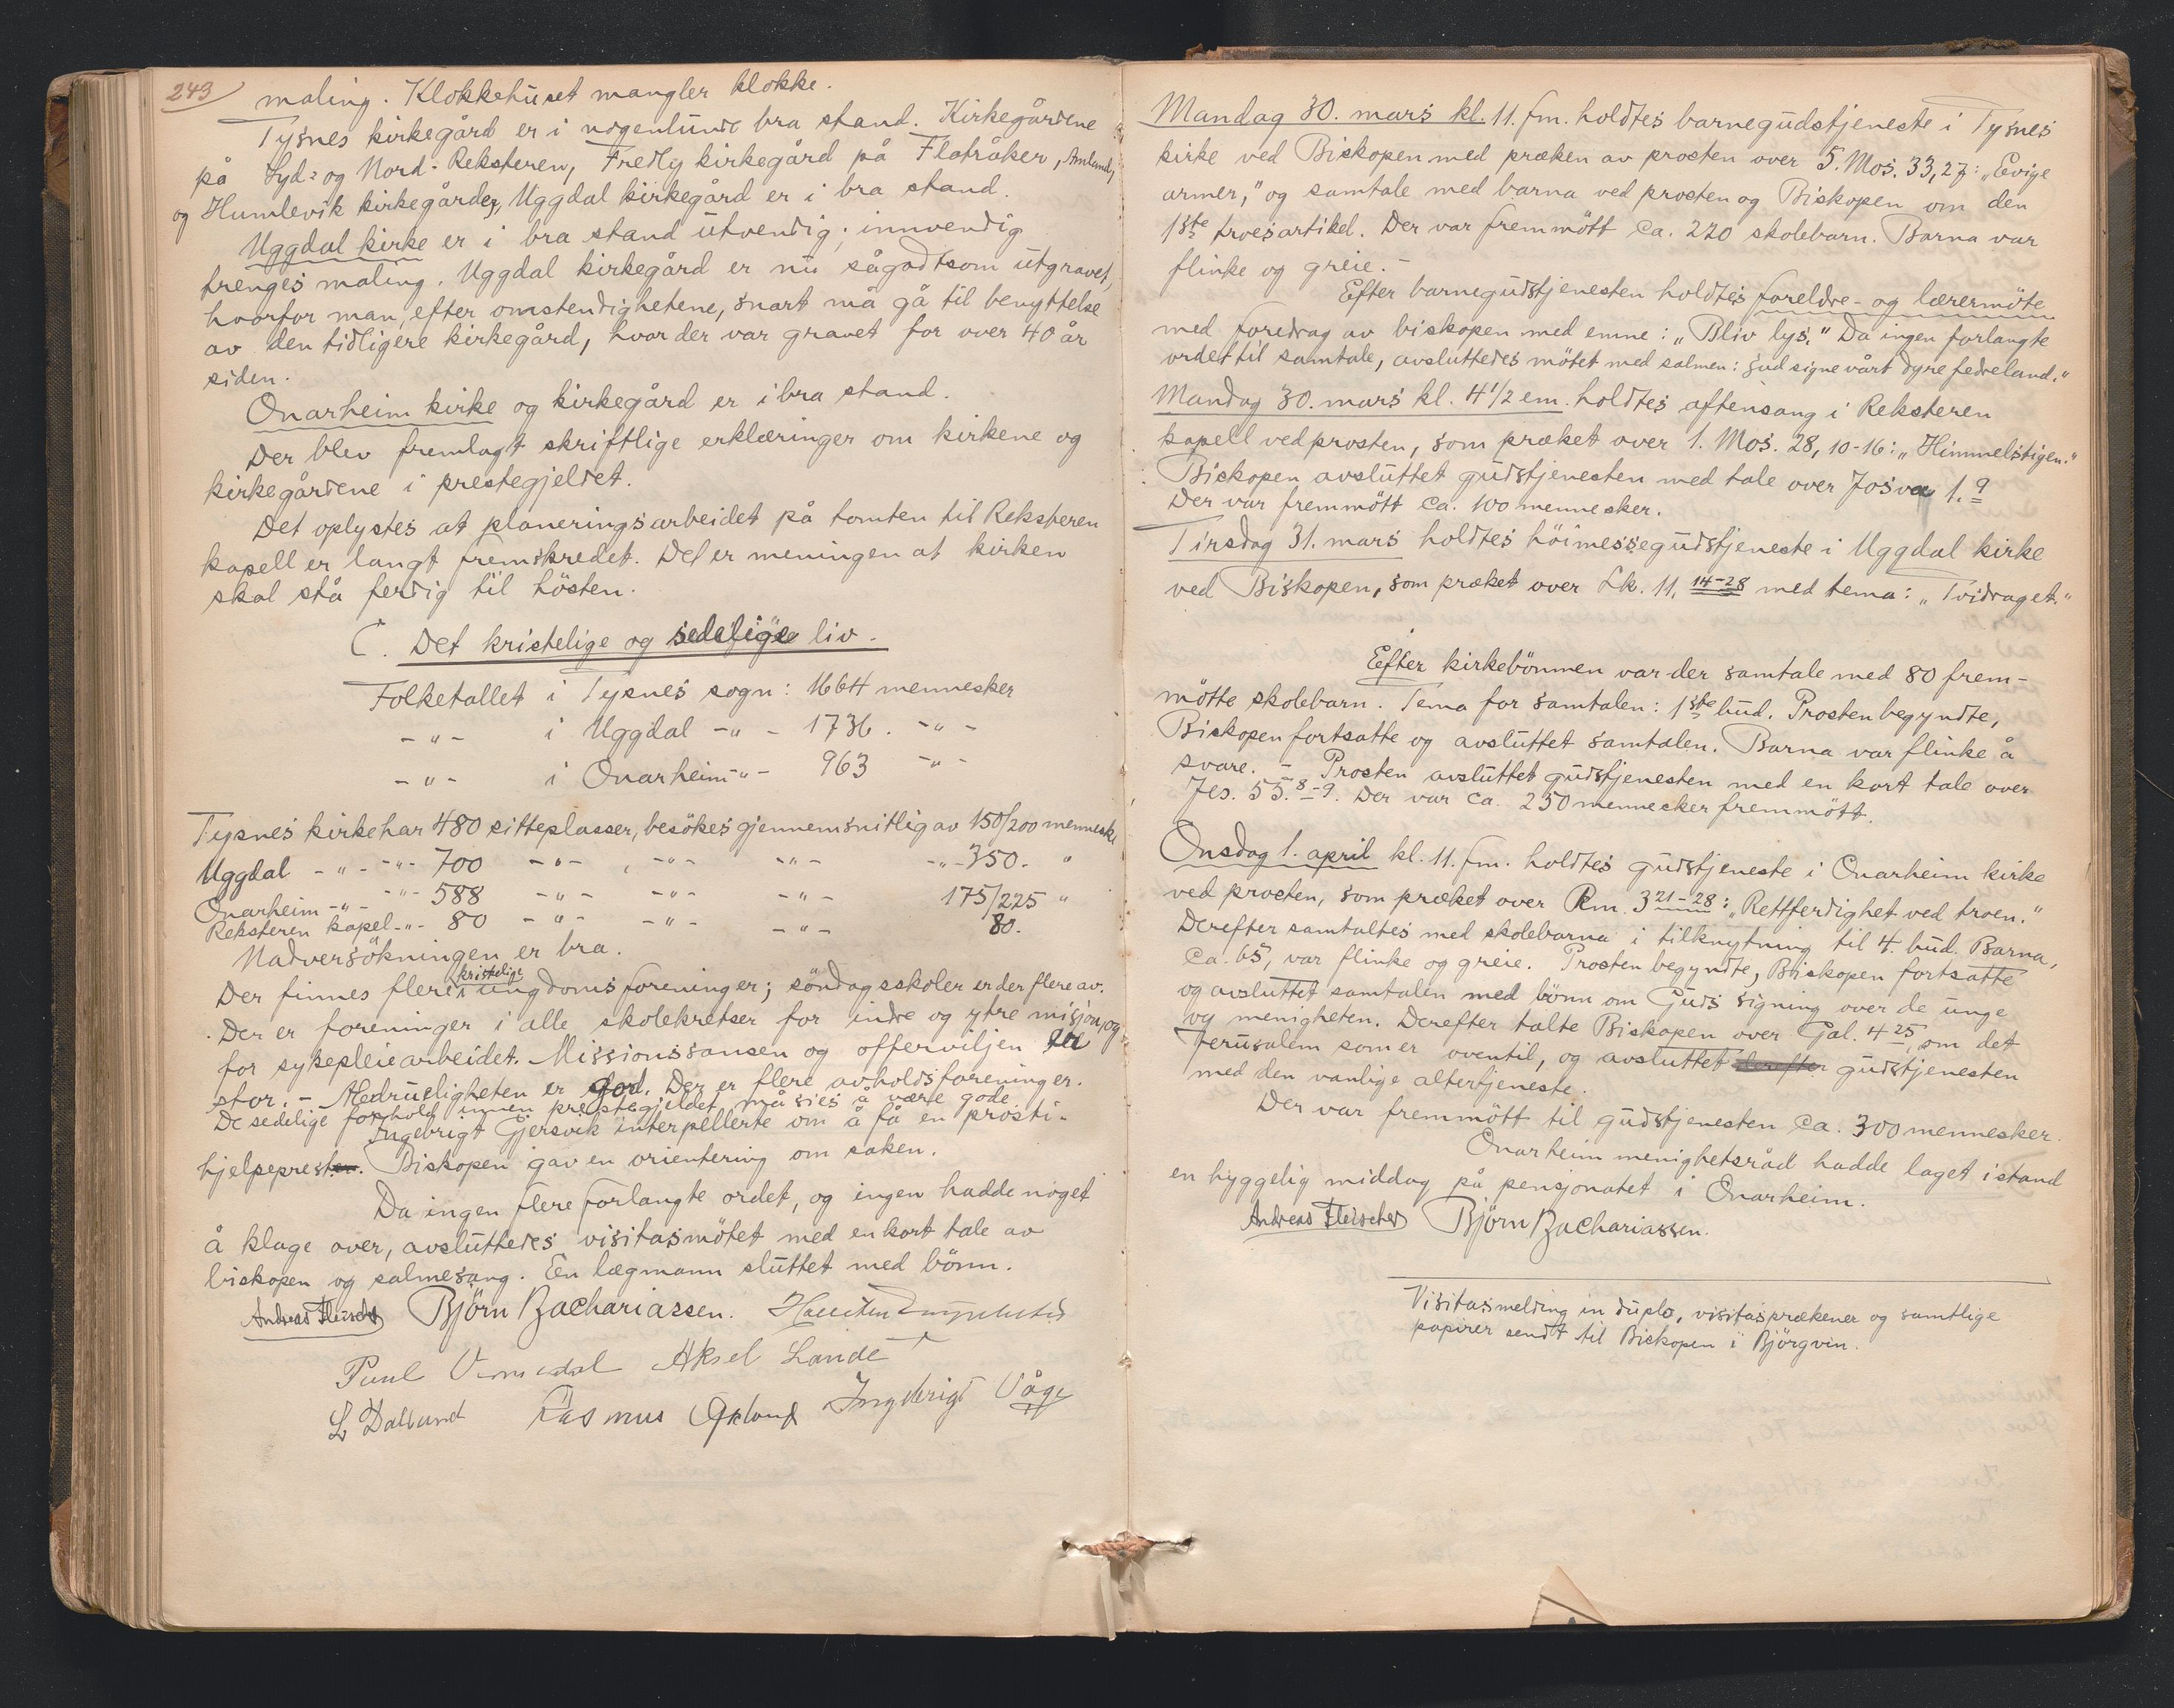 243
maling. Klokkehuset mangler klokke.
Tysnes kirkegård er i nogenlunde bra stand. Kirkegårdene
på Syd- og Nord-Reksteren, Fredly kirkegård på Flatråker, Amland,
og Humlevik kirkegårder, Uggdal kirkegård er i bra stand.
Uggdal kirke er i bra stand utvendig; innvendig
trenges maling. Uggdal kirkegård er nu sågodtsom utgravet,
hvorfor man, efter omstendighetene, snart må gå til benyttelse
av den tidligere kirkegård, hvor der var gravet for over 40 år
siden.
Onarheim kirke og kirkegård er i bra stand.
Der blev fremlagt skriftlige erklæringer om kirkene og
kirkegårdene i prestegjeldet.
Det oplystes at planeringsarbeidet på tomten til Reksteren
kapell er langt fremskredet. Det er meningen at kirken
skal stå ferdig til hösten.
C. Det kristelige og sedelige liv.
Folketallet i Tysnes sogn: 1664 mennesker
-"- i Uggdal -"- 1736. -"-
-"- i Onarheim -"- 963 -"-
Tysnes kirke har 480 sitteplasser, besökes gjennemsnitlig av 150/200 menneske
Uggdal -"- -"- 700 -"- , -"- -"- -"- 350. "
Onarheim -"- -"- 588 -"- -"- -"- 175/225 "
Reksteren kapel -"- 80 -"- -"- -"- 80.
Nadversökningen er bra.
Der finnes flere kristelige ungdomsforeninger; söndagsskoler er der flere av.
Der er foreninger i alle skolekretser for indre og ytre misjon, og
for sykepleiearbeidet. Missionssansen og offerviljen er
stor. - Aedrueligheten er god. Der er flere avholdsforeninger.
De sedelige forhold innen prestegjeldet må sies å være gode.
Ingebrigt Gjersvik interpellerte om å få en prosti-
hjelpeprest. Biskopen gav en orientering om saken.
Da ingen flere forlangte ordet, og ingen hadde noget
å klage over, avsluttedes visitasmötet med en kort tale av
biskopen og salmesang. En lægmann sluttet med bönn.
Andreas Fleischer Björn Zachariassen.
Paul Aksel Lande
L Dalland Rasmus Økland Ingebrigt Våge
Mandag 30. mars kl. 11. fm. holdtes barnegudstjeneste i Tysnes
kirke ved Biskopen med præken av prosten over 5. Mos. 33,27: „Evige
armer," og samtale med barna ved prosten og Biskopen om den
1ste troesartikel. Der var fremmött ca. 220 skolebarn. Barna var
flinke og greie. -
Efter barnegudstjenesten holdtes foreldre- og lærermöte
med foredrag av biskopen med emne: „Bliv lys." Da ingen forlangte
ordet til samtale, avsluttedes mötet med salmen: Gud signe vårt dyre fedreland."
Mandag 30. mars kl. 4 1/2 em. holdtes aftensang i Reksteren
kapell ved prosten, som præket over 1. Mos. 28, 10-16: „Himmelstigen."
Biskopen avsluttet gudstjenesten med tale over Josva 1. 9
Der var fremmött ca. 100 mennesker.
Tirsdag 31. mars holdtes höimessegudstjeneste i Uggdal kirke
ved Biskopen, som præket over Lk. 11. 14-28 med tema: „Tvidraget."
Efter kirkebönnen var der samtale med 80 frem-
mötte skolebarn. Tema for samtalen: 1ste bud. Prosten begyndte,
Biskopen fortsatte og avsluttet samtalen. Barna var flinke å
svare. - Prosten avsluttet gudstjenesten med en kort tale over
Jes. 55. 8-9. Der var ca. 250 mennesker fremmött.
Onsdag 1. april kl. 11. fm. holdtes gudstjeneste i Onarheim kirke
ved prosten, som præket over Rm. 3 21-28: „Rettferdighet ved troen."
Derefter samtaltes med skolebarna i tilknytning til 4. bud. Barna,
ca. 65, var flinke og greie. Prosten begyndte, Biskopen fortsatte
og avsluttet samtalen med bönn om Guds signing over de unge
og menigheten. Derefter talte Biskopen over Gal. 4 25, om det
Jerusalem som er oventil, og avsluttet derefter gudstjenesten
med den vanlige altertjeneste.
Der var fremmött til gudstjenesten ca. 300 mennesker.
Onarheim menighetsråd hadde laget istand
en hyggelig middag på pensjonatet i Onarheim.
Andreas Fleischer Björn Zachariassen.
Visitasmelding in duplo, visitasprækener og samtlige
papirer sendt til Biskopen i Björgvin.